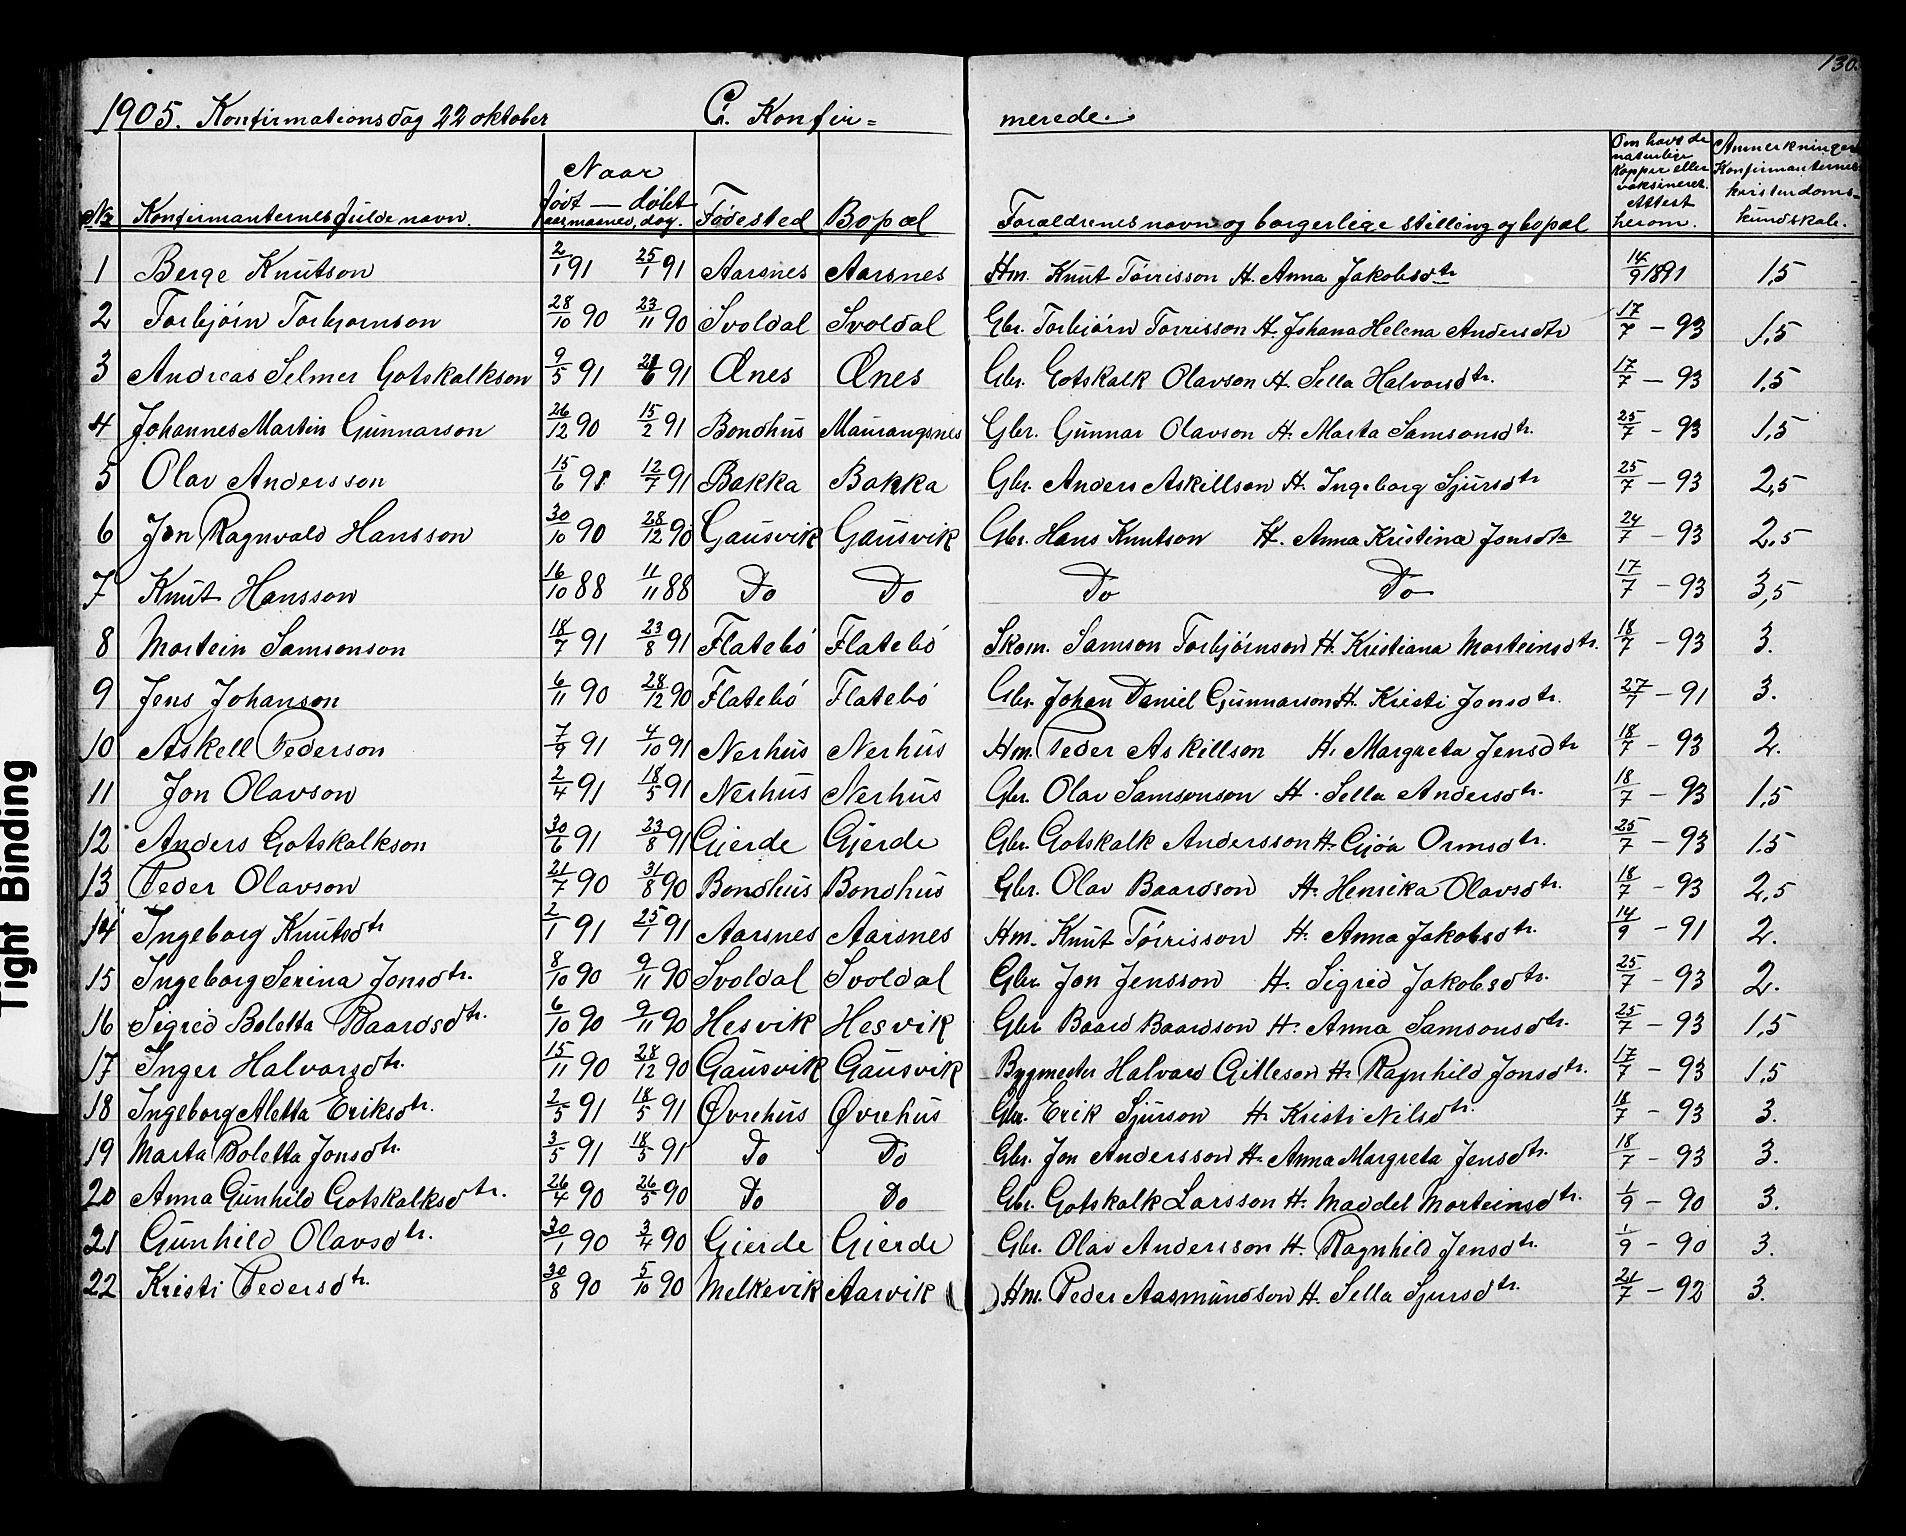 130.
1905. Konfirmationsdag 22 oktober C. Konfir= merede.
No Konfirmanternes fulde navn. Naar født — døbt aar, maaned, dag. Fødested Bopæl Foræeldrenes navn og borgerlige stilling og bopæl Om havt de naturlige Kopper eller vaksineret. Attest herom. Anmerkninger Konfirmanternes kristendoms- kundskab.
1 Berge Knutson 2/1 91 25/1 91 Aarsnes Aarsnes Hm. Knut Tørrisson H. Anna Jakobsdtr 14/9 1891 1,5
2 Torbjørn Torbjørnson 28/10 90 23/11 90 Svoldal Svoldal Gbr. Torbjørn Torrisson H. Johana Helena Andersdtr 17/7 - 93 1,5
3 Andreas Selmer Gotskalkson 9/5 91 21/6 91 Ænes Ænes Gbr. Gotskalk Olavson H. Sella Halvorsdtr. 17/7 - 93 1,5
4 Johannes Martin Gunnarson 26/12 90 15/2 91 Bondhus Maurangsnes Gbr. Gunnar Olavson H. Marta Samsonsdtr. 25/7 - 93 1,5
5 Olav Andersson 15/6 91 12/7 91 Bakka Bakka Gbr. Anders Askillson H. Ingeborg Sjursdtr 25/7 - 93 2,5
6 Jon Ragnvald Hansson 30/10 90 28/12 90 Gausvik Gausvik Gbr. Hans Knutson H. Anna Kristina Jonsdtr 24/7 - 93 2,5
7 Knut Hansson 16/10 88 11/11 88 Do Do Do Do 17/7 - 93 3,5
8 Mortein Samsonson 18/7 91 23/8 91 Flatebó Flatebó Skom. Samson Torbjørnson H. Kristiana Morteinsdtr. 18/7 - 93 3.
9 Jens Johanson 6/11 90 28/12 90 Flatebó Flatebó Gbr. Johan Daniel Gunnarson H. Kristi Jonsdtr. 27/7 - 91 3.
10 Askell Pederson 7/9 91 4/10 91 Nerhus Nerhus Hm. Peder Askillson H. Margreta Jensdtr 18/7 - 93 2.
11 Jon Olavson 2/4 91 18/5 91 Nerhus Nerhus Gbr. Olav Samsonson H. Sella Andersdtr. 18/7 - 93 1,5
12 Anders Gotskalkson 30/6 91 23/8 91 Gjerde Gjerde Gbr. Gotskalk Andersson H. Gjøa Ormsdtr. 25/7 - 93 1.5
13 Peder Olavson 21/7 90 31/8 90 Bondhus Bondhus Gbr. Olav Baardson H. Henrika Olavsdtr. 18/7 - 93 2,5
14 Ingeborg Knutsdtr 2/1 91 25/1 91 Aarsnes Aarsnes Hm. Knut Tørrisson H. Anna Jakobsdtr. 14/9 - 91 2.
15 Ingeborg Serina Jonsdtr. 8/10 90 9/11 90 Svoldal Svoldal Gbr. Jon Jensson H. Sigrid Jakobsdtr. 25/7 - 93 2.
16 Sigrid Boletta Baardsdtr. 6/10 90 9/11 90 Hesvik Hesvik Gbr. Baard Baardson H. Anna Samsonsdtr. 25/7 - 93 1,5
17 Inger Halvorsdtr. 15/11 90 28/12 90 Gausvik Gausvik Bygmester Halvard Gitleson H. Ragnhild Jonsdtr. 17/7 - 93 1,5
18 Ingeborg Aletta Eriksdtr. 2/5 91 18/5 91 Øvrehus Øvrehus Gbr. Erik Sjurson H. Kristi Nilsdtr. 18/7 - 93 3.
19 Marta Boletta Jonsdtr. 3/5 91 18/5 91 Do Do Gbr. Jon Andersson H. Anna Margreta Jensdtr. 18/7 - 93 3.
20 Anna Gunhild Gotskalksdtr. 26/4 90 26/5 90 Do Do Gbr. Gotskalk Larsson H. Maddel Morteinsdtr. 1/9 - 90 3.
21 Gunhild Olavsdtr. 30/1 90 3/4 90 Gjerde Gjerde Gbr. Olav Andersson H. Ragnhild Jensdtr. 1/9 - 90 3.
22 Kristi Pedersdtr. 30/8 90 5/10 90 Melkevik Aarvik ( ) Hm. Peder Aasmundson H. Sella Sjursdtr. 21/7 - 92 3.
Tight Binding